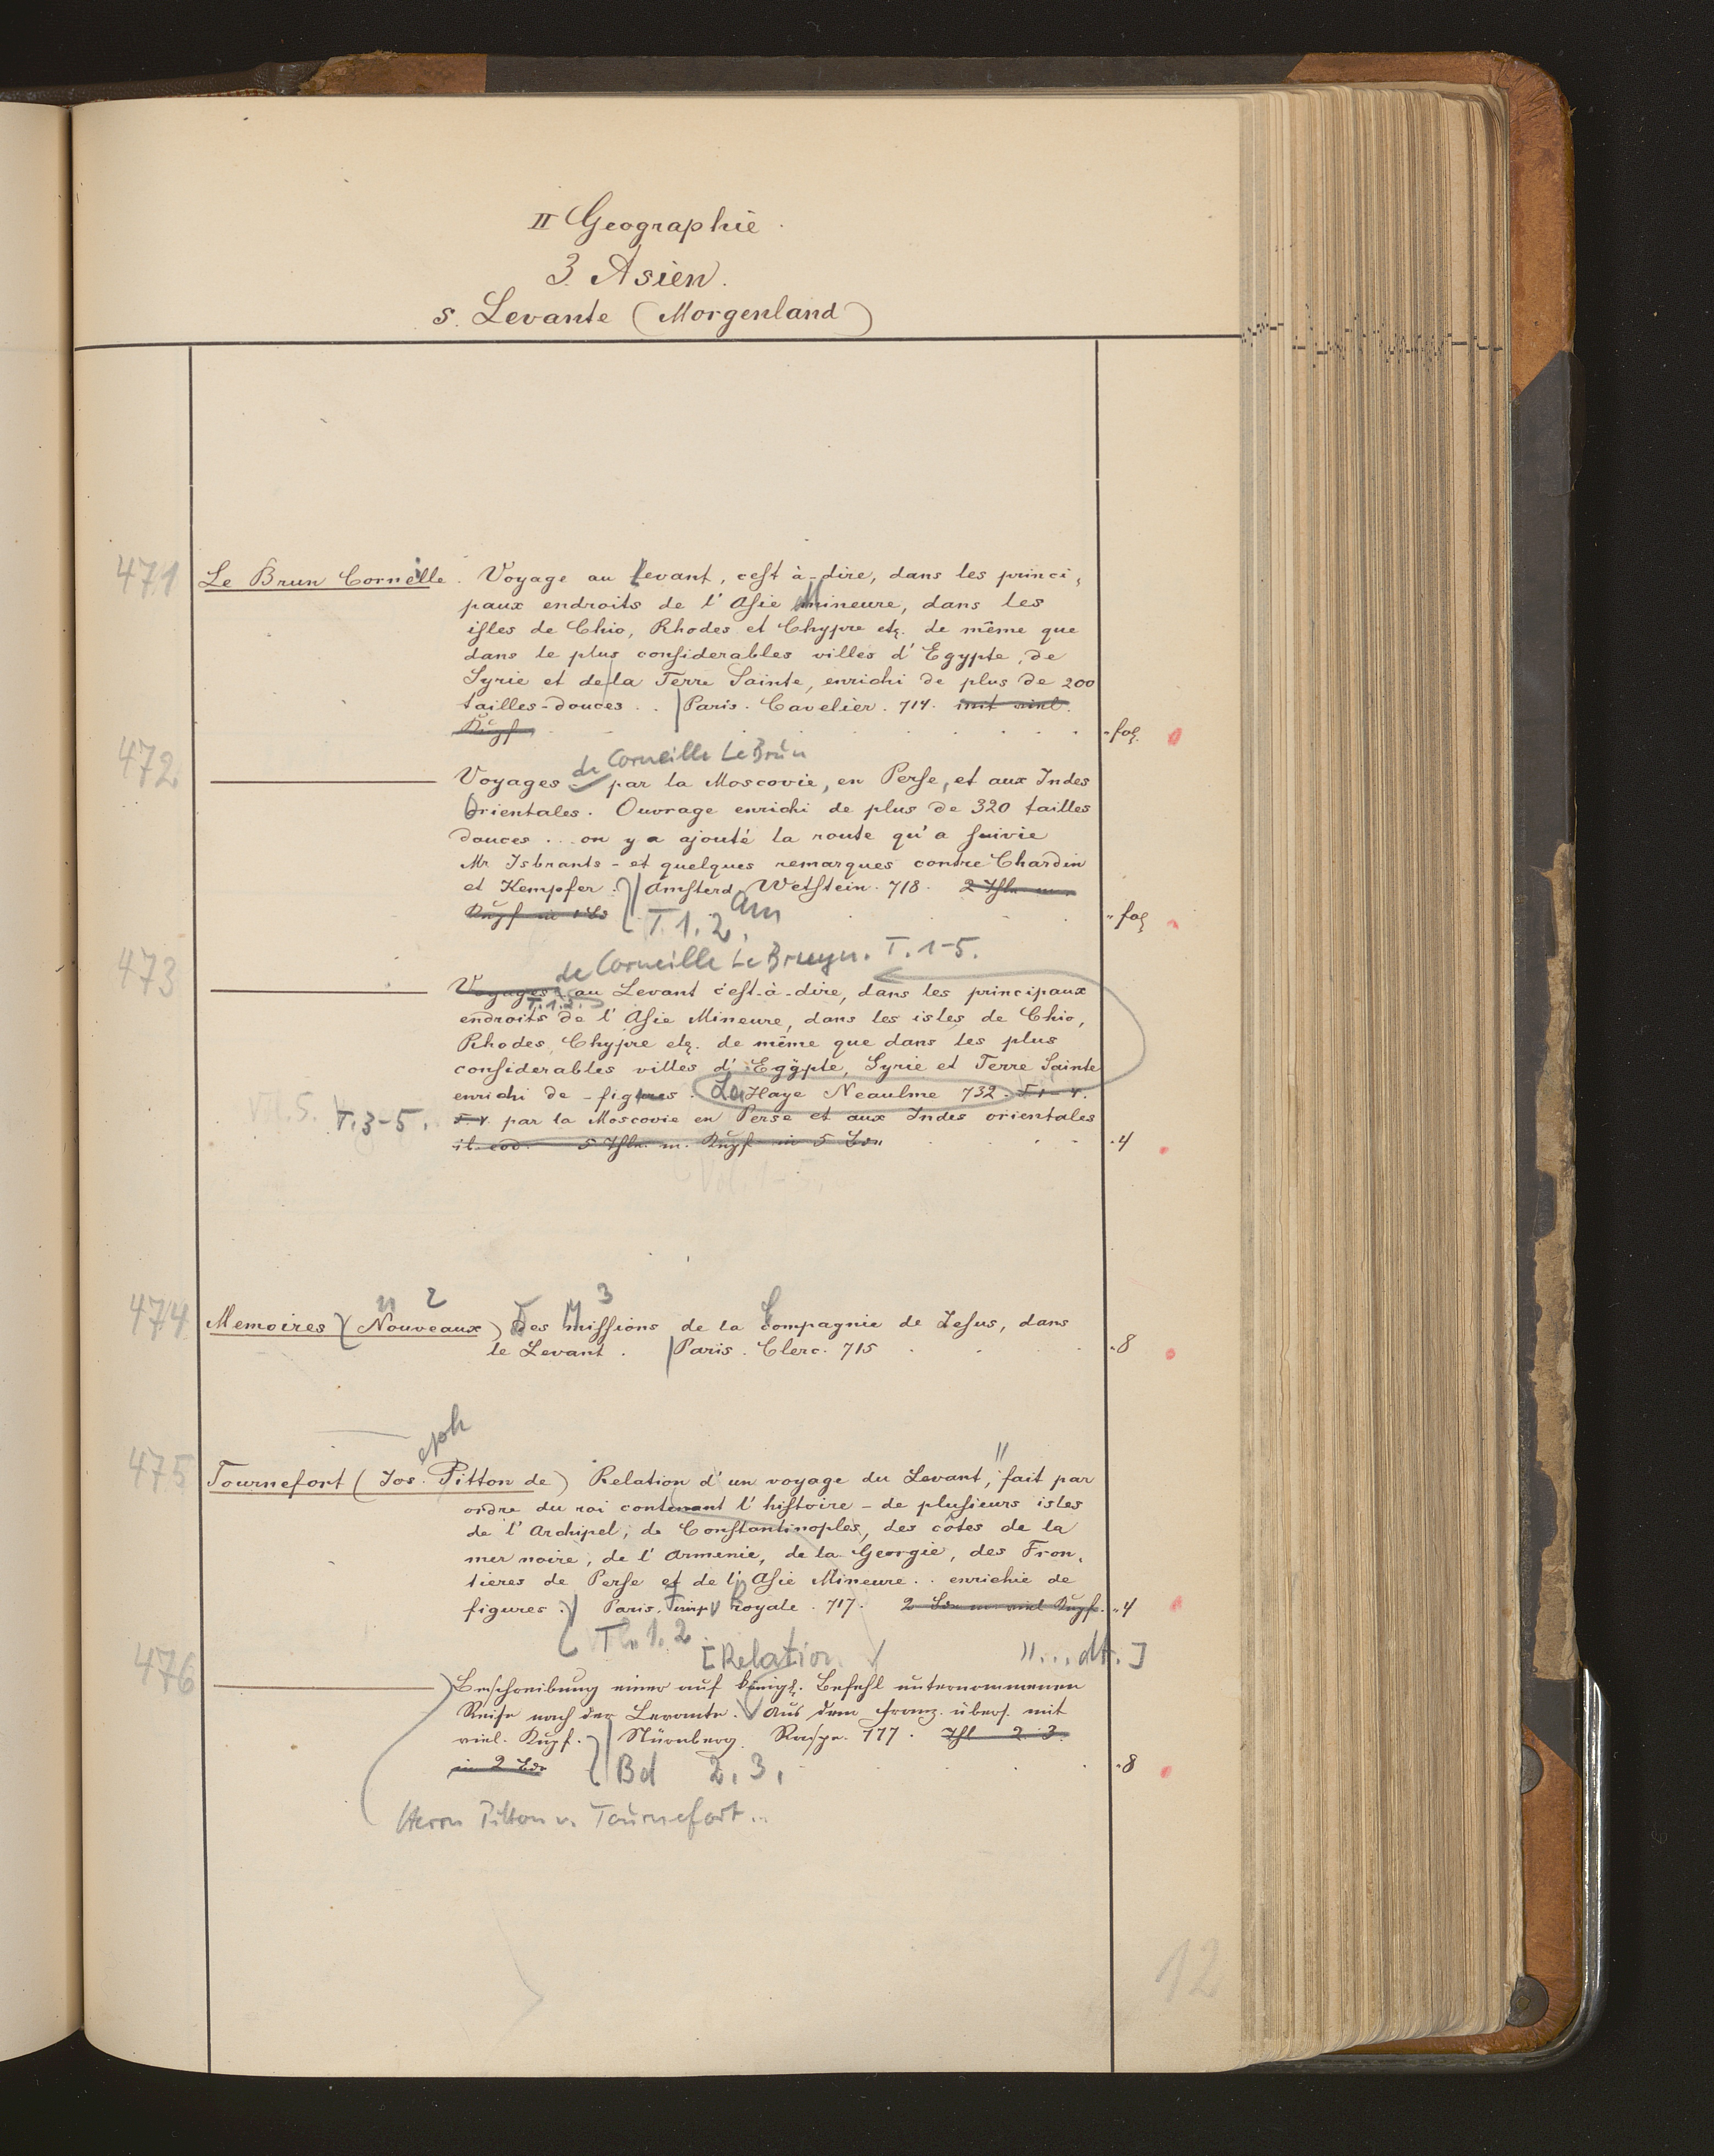 II Geographie.
3. Asien.
s. Levante (Morgenland)
471 Le Brun Corneille. Voyage au Levant, cest à-dire, dans les princi,
paux endroits de l'Asie Mineure, dans les
isles de Chio, Rhodes et Chypre etc. de même que
dans le plus considerables villes d'Egypte, de
Syrie et de la Terre Sainte, enrichi de plus de 200
tailles-douces . . | Paris. Cavelier. 714. mit viel.
Kupf. fol.
472 de Corneille Le Brun
Voyages par la Moscovie, en Perse, et aux Indes
Orientales. Ouvrage enrichi de plus de 320 tailles
douces . . . on y a ajouté la route qu'a suivie
Mr Isbrants - et quelques remarques contre Chardin
et Kempfer. Amsterd. Wetstein. 718. 2 Thle m.
Kupf in 1 Bd T. 1. 2. Am fol
473 de Corneille Le Bruyn. T. 1-5.
Voyages au Levant c'est-à-dire, dans les principaux
T. 1. 2.
endroits de l'Asie Mineure, dans les isles de Chio,
Rhodes, Chypre etc. de même que dans les plus
considerables villes d'Egypte, Syrie et Terre Sainte
enrichi de - figures. La Haye Neaulme 732. T 1-4.
T. 3-5. par la Moscovie en Perse et aux Indes orientales
it. eod. 5 Thle. m. Kupf in 5 Bdn 4
Vol. 1-5.
474 n 2 3
Memoires (Nouveaux) Des Missions de la Compagnie de Jesus, dans
le Levant. | Paris. Clerc. 715 8
475 eph
Tournefort (Jos. Pitton de) Relation d'un voyage du Levant, fait par
ordre du roi contenant l'histoire - de plusieurs isles
de l'Archipel, de Constantinoples, des côtes de la
mer noire, de l'Armenie, de la Georgie, des Fron,
tieres de Perse et de l'Asie Mineure . . enrichie de
figures. Paris. Imp Royale. 717. 2 Bde m. viel Kupf. 4
T. 1. 2
476 [Relation "... dt.]
Beschreibung einer auf königl. Befehl unternommenen
Reise nach der Levante. Aus dem franz. übers. mit
viel. Kupf. | Nürnberg. Raspe. 777. Thl 2. 3.
in 2 Bdn Bd 2. 3. 8
Herrn Pitton v. Tournefort..
12